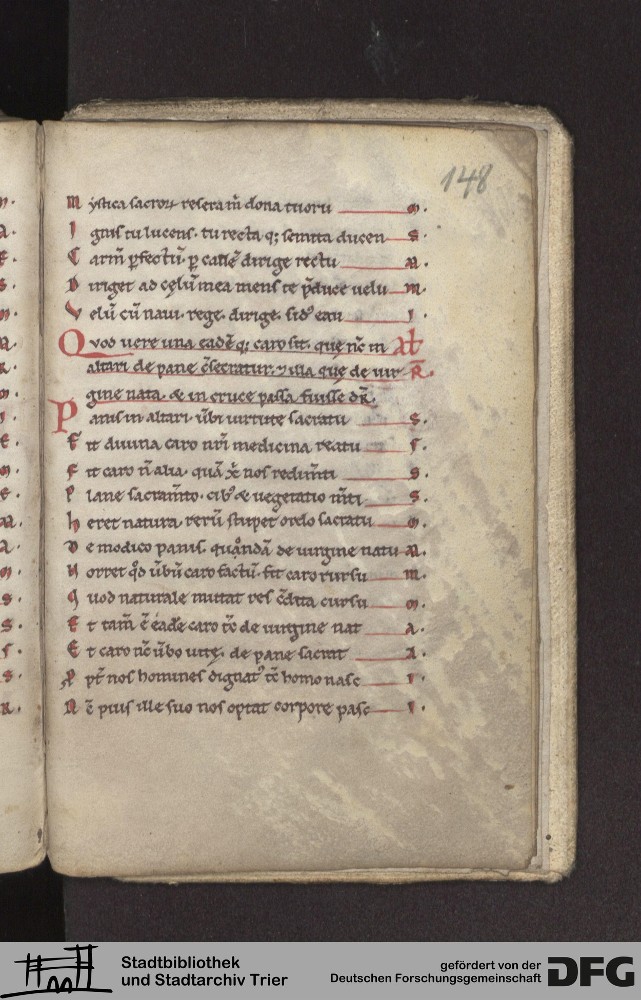 148
Mystica sacroꝝ reseram̄ dona tuoru M.
Ignis tu lucens. tu recta q; semita ducen S
Carm̄ ꝑfectū. ꝑ callē dirige rectu M.
Diriget ad cęlū mea mens te p̄duce velu M.
Velū cū naui. rege. dirige. eau I.
Quod uere una eadē q; caro sit. que nc̄ in Alt̄
altari de pane c̄secratur. ⁊ illa quę de uir R̄.
gine nata. & in cruce passa fuisse dr̄.
Panis in altari. ūbi uirtute sacratu S.
Fit diuina caro nr̄i medicina reatu S.
Fit caro n̄ alia. quā xp̄c nos redimīti S.
Plane sacram̄to. cibꝰ & uegetatio m̄ti S.
Heret natura. rerū stupet ordo sacratu M.
De modico panis. quondā de uirgine natu M.
Horret qd̄ ūbū caro factū. fit caro rursu M.
Quod naturale mutat res c̄dita cursu M.
Et tam̄ ē eadē caro tc̄ de uirgine nat A.
Et caro nc̄ ūbo uitę. de pane sacrat A.
ꝓpt̄ nos homines dignatꝰ tc̄ homo nasc I.
Nc̄ pius ille suo nos optat corpore pasc I.
Stadtbibliothek
und Stadtarchiv Trier
gefördert von der
Deutschen Forschungsgemeinschaft
DFG